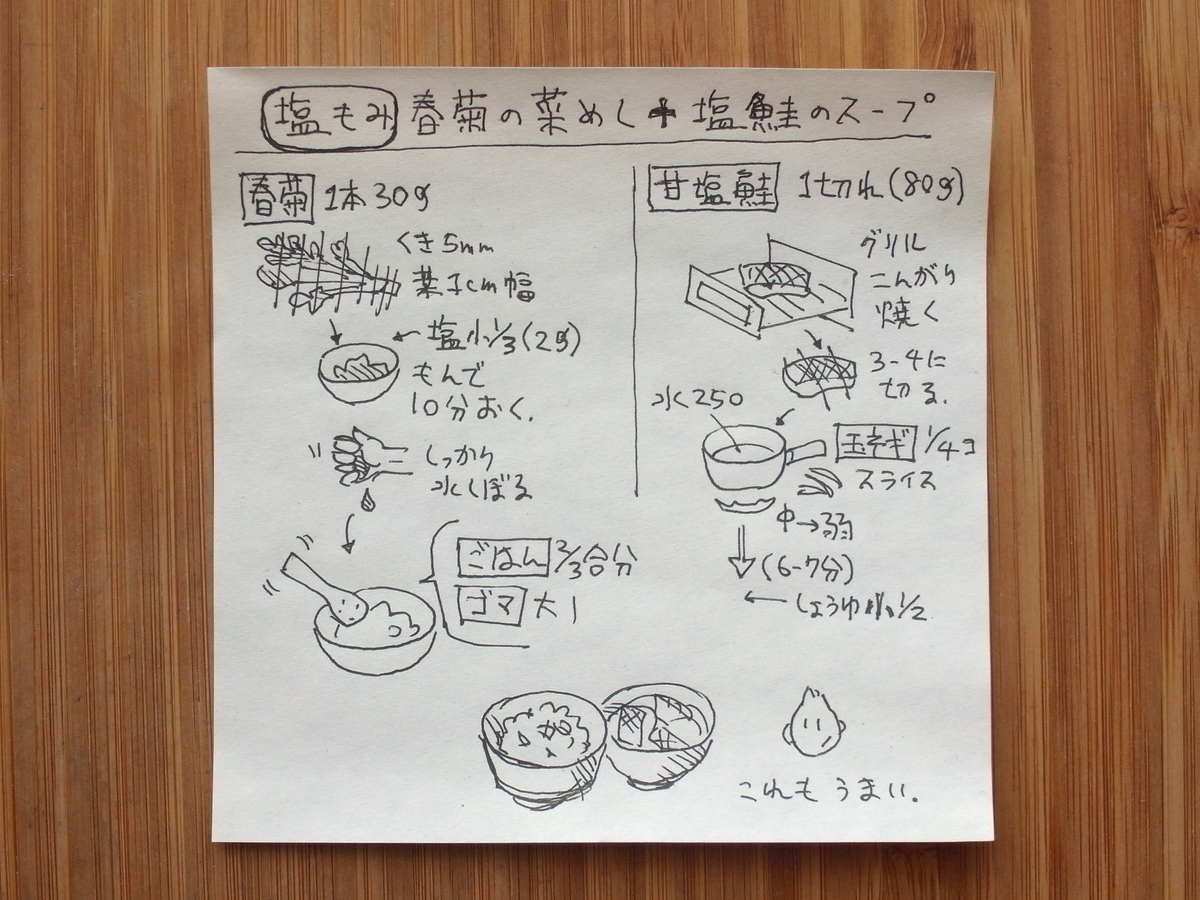 塩もみ 春菊の菜めし + 塩鮭のスープ
春菊 1本30g
くき5mm
葉1cm幅
塩小1/3(2g)
もんで
10分おく.
しっかり
水しぼる
ごはん 2/3合分
ゴマ 大1
甘塩鮭 1切れ(80g)
グリル
こんがり
焼く
3-4に
切る.
水250
玉ネギ 1/4コ
スライス
中→弱
(6-7分)
しょうゆ小1/2
これも うまい.